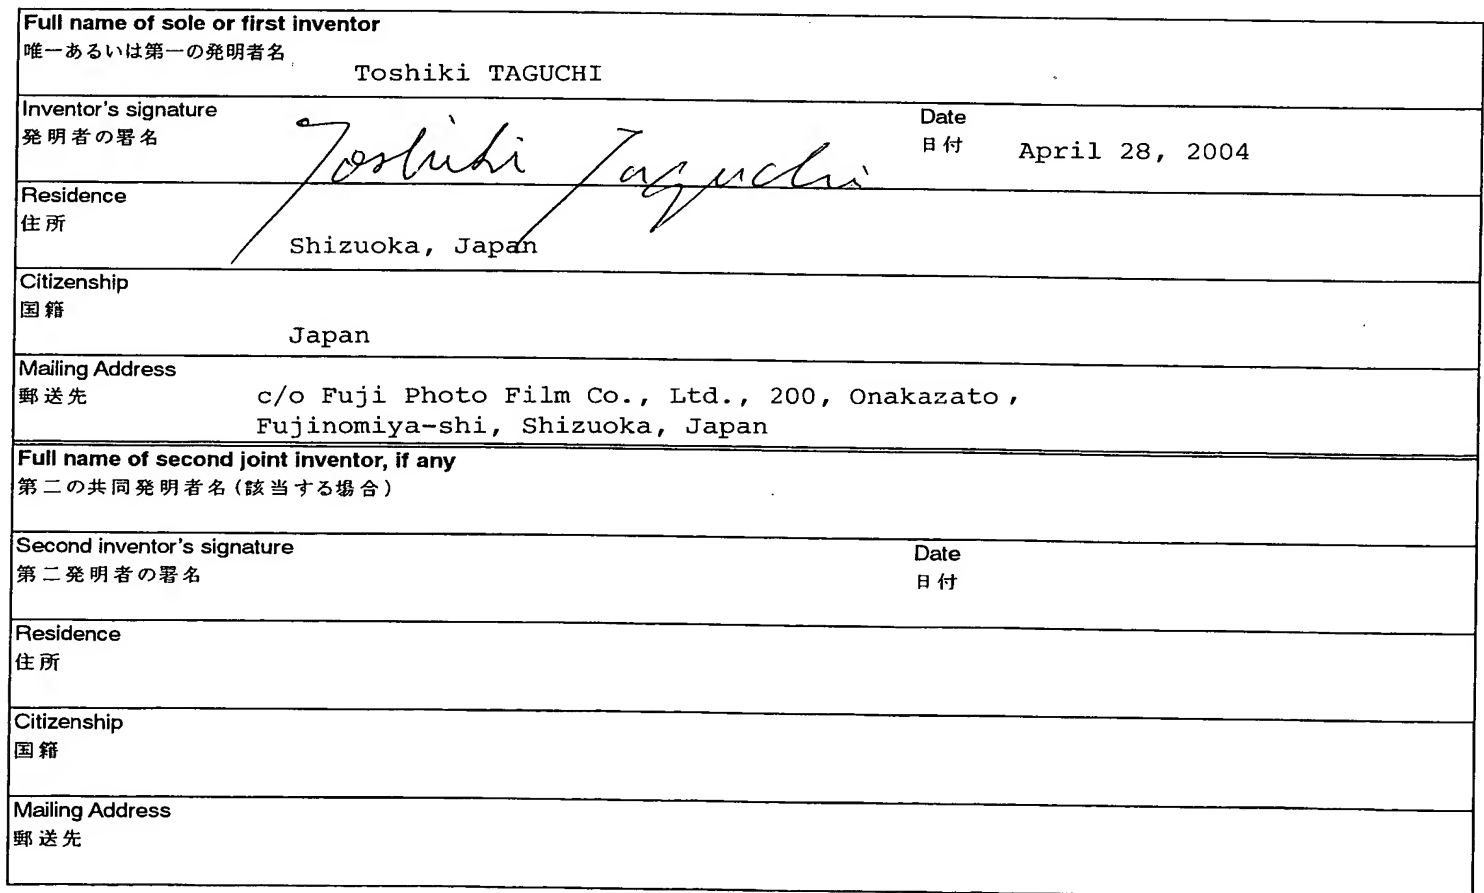 Full name of sole or first inventor
唯一あるいは第一の発明者名
Toshiki TAGUCHI
Inventor's signature
発明者の署名
Toshiki Taguchi
Date
日付
April 28, 2004
Residence
住所
Shizuoka, Japan
Citizenship
国籍
Japan
Mailing Address
郵送先
c/o Fuji Photo Film Co., Ltd., 200, Onakazato,
Fujinomiya-shi, Shizuoka, Japan
Full name of second joint inventor, if any
第二の共同発明者名(該当する場合)
Second inventor's signature
第二発明者の署名
Date
日付
Residence
住所
Citizenship
国籍
Mailing Address
郵送先